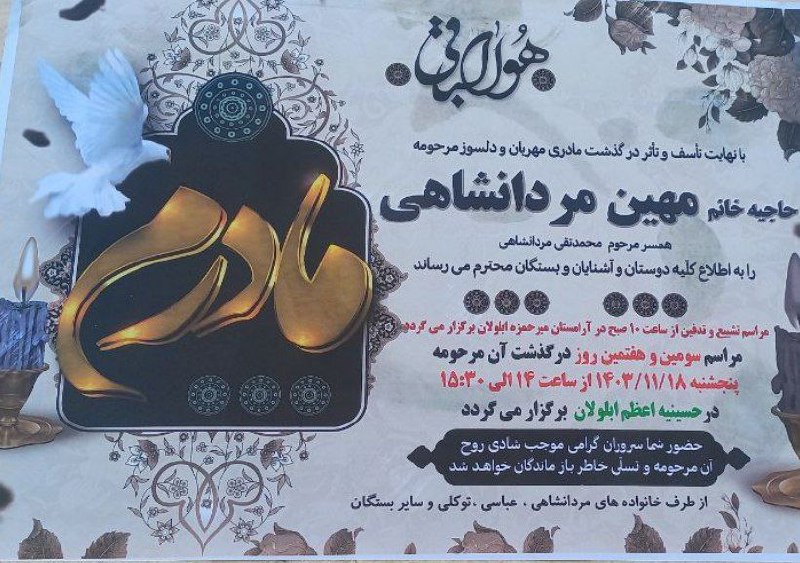 هوالباقی
با نهایت تأسف و تأثر درگذشت مادری مهربان و دلسوز مرحومه
حاجیه خانم مهین مردانشاهی
همسر مرحوم محمدتقی مردانشاهی
را به اطلاع کلّیه دوستان و آشنایان و بستگان محترم می رساند
مادرم
مراسم تشییع و تدفین از ساعت ۱۰ صبح در آرامستان میرحمزه ابلولان برگزار می گردد
مراسم سومین و هفتمین روز درگذشت آن مرحومه
پنجشنبه ۱۴۰۳/۱۱/۱۸ از ساعت ۱۴ الی ۱۵:۳۰
در حسینیه اعظم ابلولان برگزار می گردد
حضور شما سروران گرامی موجب شادی روح
آن مرحومه و تسلّی خاطر بازماندگان خواهد شد
از طرف خانواده های مردانشاهی ، عباسی ، توکلی و سایر بستگان